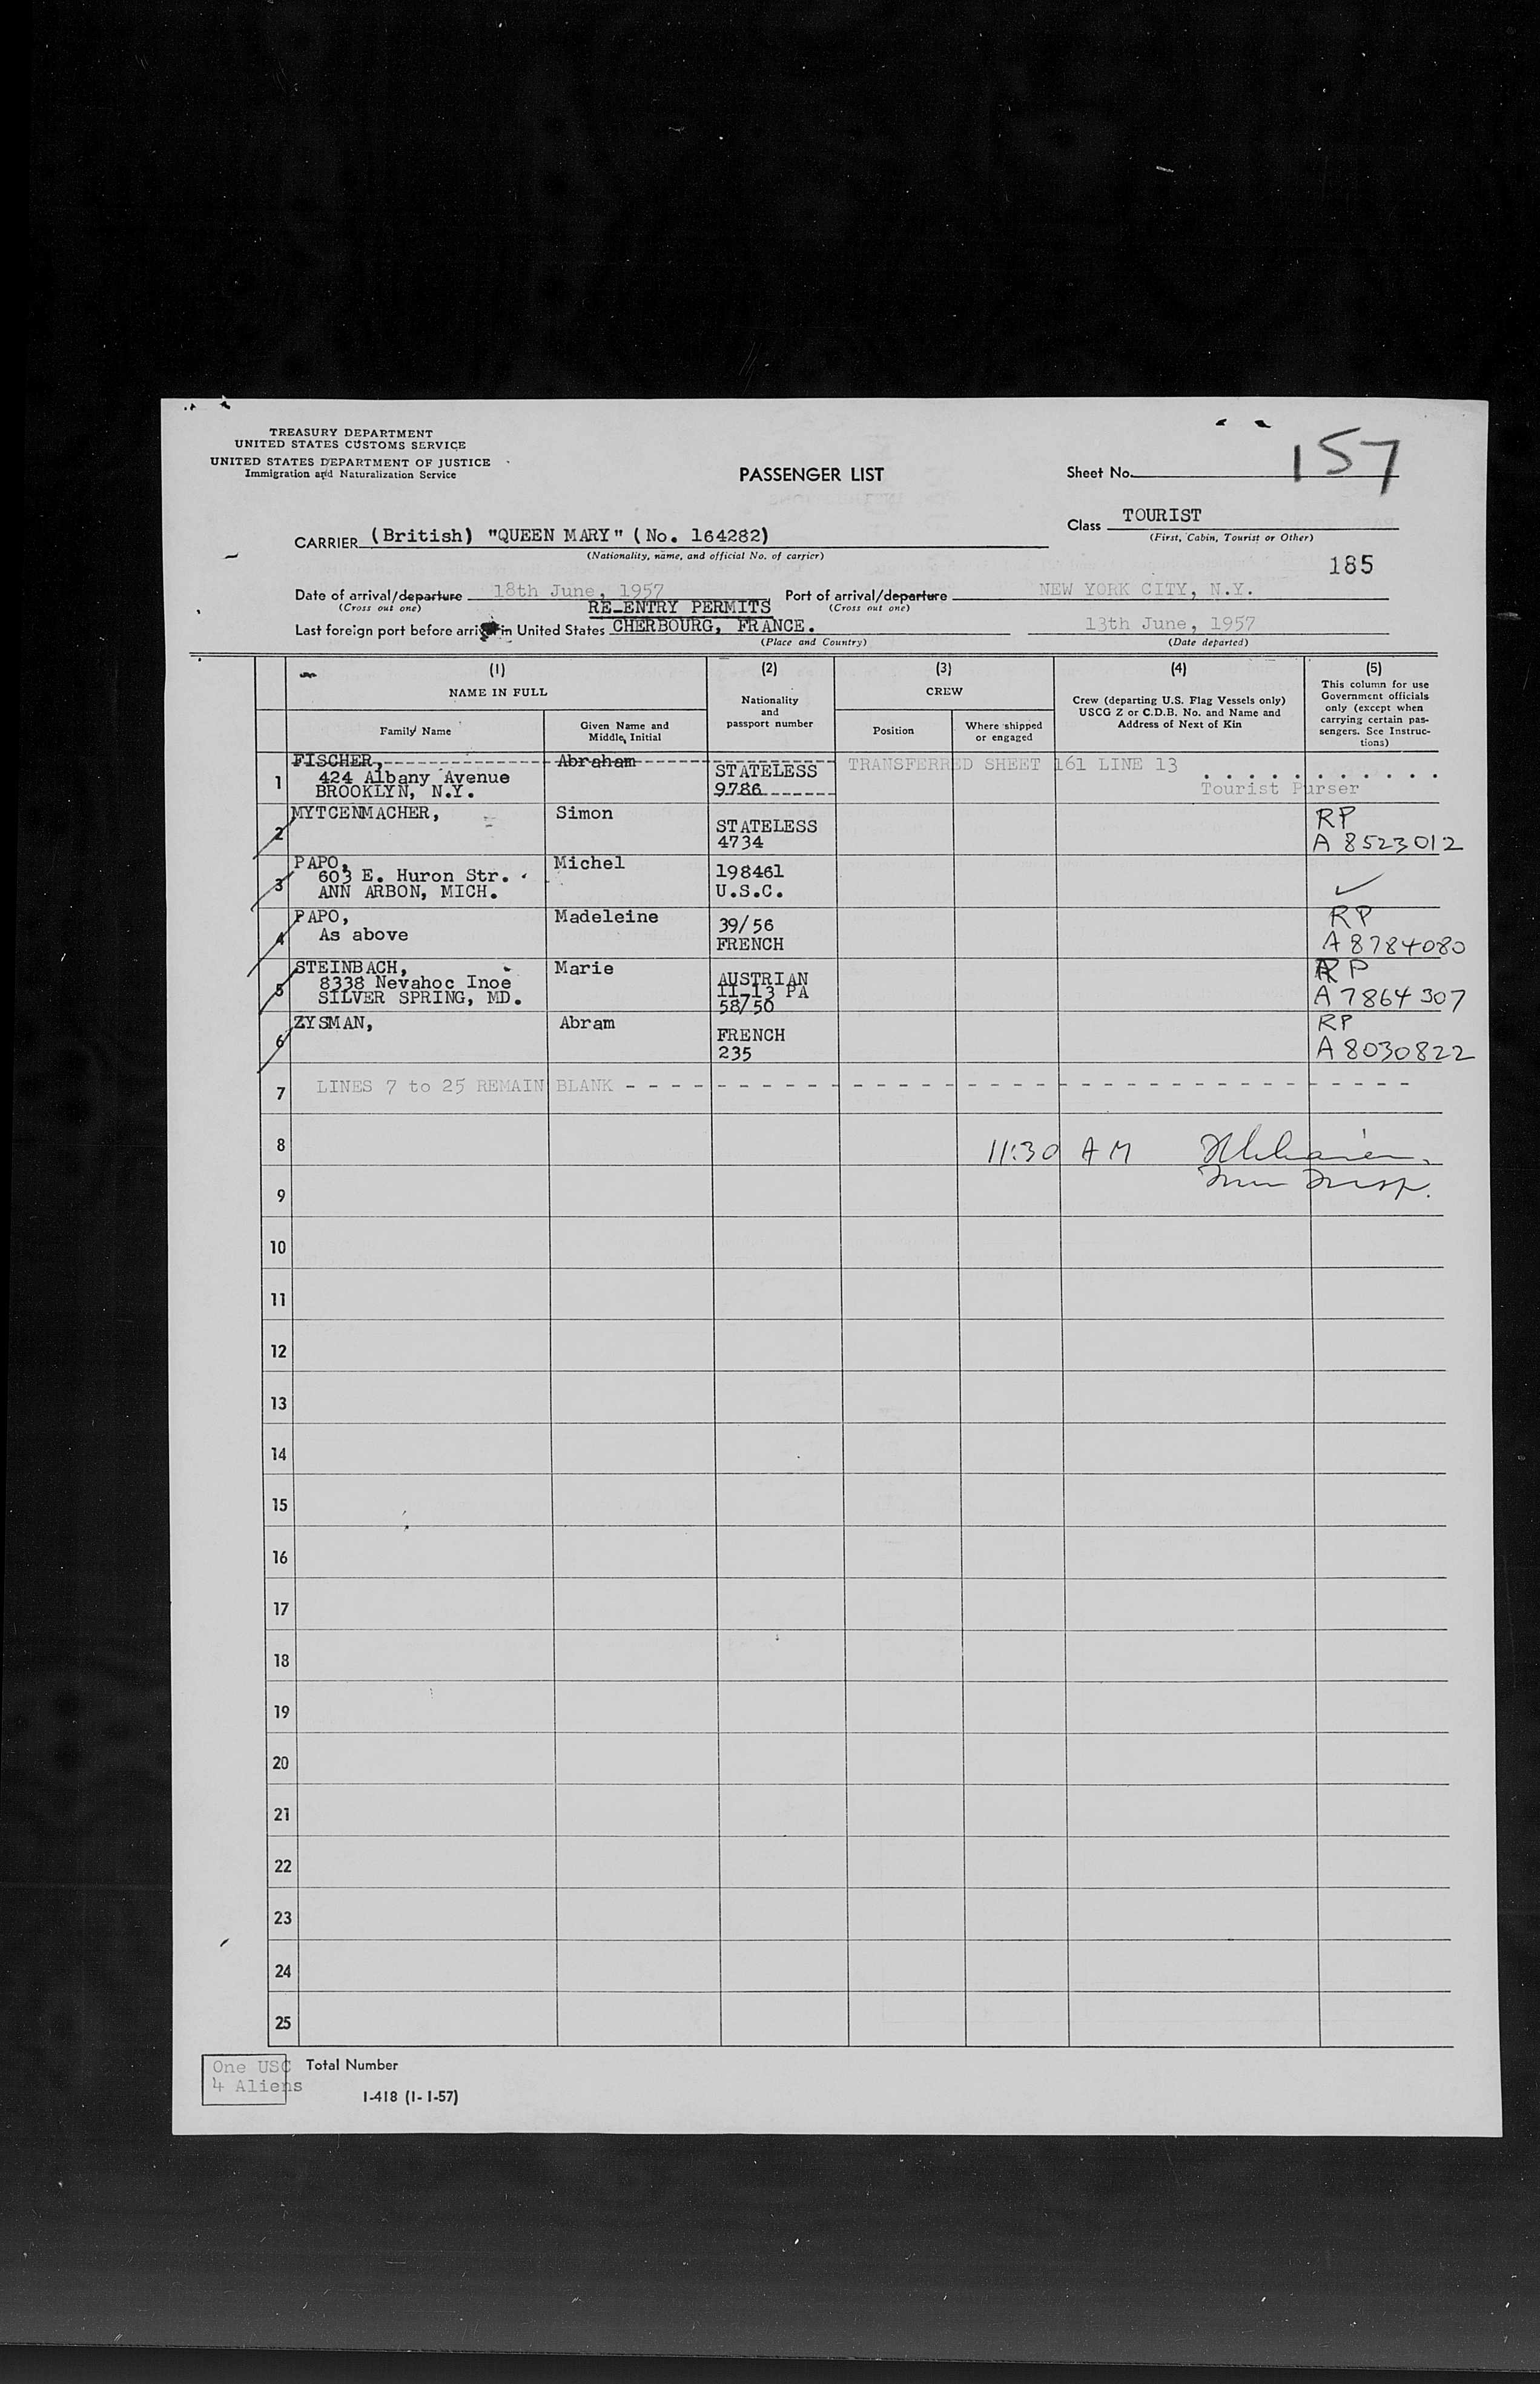 TREASURY DEPARTMENT
UNITED STATES CUSTOMS SERVICE
UNITED STATES DEPARTMENT OF JUSTICE
Immigration and Naturalization Service
PASSENGER LIST
Sheet No. 157
Class TOURIST
(First, Cabin, Tourist or Other)
CARRIER (British) "QUEEN MARY" (No. 164282)
(Nationality, name, and official No. of carrier)
185
Date of arrival/departure 18th June, 1957 Port of arrival/departure NEW YORK CITY, N.Y.
(Cross out one) RE-ENTRY PERMITS (Cross out one)
Last foreign port before arrival in United States CHERBOURG, FRANCE. 13th June, 1957
(Place and Country) (Date departed)
(1) (2) (3) (4) (5)
NAME IN FULL
Family Name
Given Name and
Middle Initial
Nationality
and
passport number
CREW
Position
Where shipped
or engaged
Crew (departing U.S. Flag Vessels only)
USCG Z or C.D.B. No. and Name and
Address of Next of Kin
This column for use
Government officials
only (except when
carrying certain pas-
sengers. See Instruc-
tions)
1 FISCHER, Abraham TRANSFERRED SHEET 161 LINE 13
424 Albany Avenue STATELESS
BROOKLYN, N.Y. 9786 Tourist Purser
2 MYTCENMACHER, Simon RP
STATELESS
4734 A 8523012
3 PAPO, Michel
603 E. Huron Str. 198461
ANN ARBON, MICH. U.S.C. ✓
4 PAPO, Madeleine 39/56 RP
As above FRENCH A 8784080
5 STEINBACH, Marie RP
8338 Nevahoc Inoe AUSTRIAN
SILVER SPRING, MD. 11-13 PA A 7864307
58/50
6 ZYSMAN, Abram RP
FRENCH
235 A 8030822
7 LINES 7 to 25 REMAIN BLANK
8 11:30 AM
9
10
11
12
13
14
15
16
17
18
19
20
21
22
23
24
25
One USC Total Number
4 Aliens
I-418 (1-1-57)